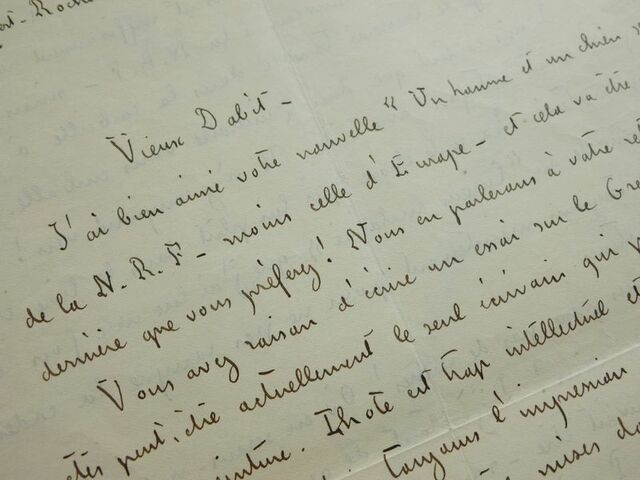 Vieux Dabit -
J'ai bien aimé votre nouvelle "Un homme et un chien
de la N.R.F - moins celle d'Europe - et cela va être
dernière que vous préferez! Nous en parlerons à votre
Vous avez raison d'écrire un essai sur le Gre
êtes peut-être actuellement le seul écrivain qui
Lhote est trop intellectuel et
Toujours l'impression
mises da